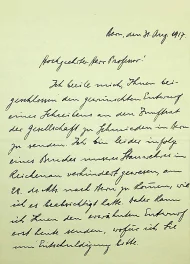 Bern, den 31. Aug. 1917.
Hochgeehrter Herr Professor!
Ich beeile mich, Ihnen bei-
geschlossen den gewünschten Entwurf
eines Schreibens an den
der Gesellschaft zu Schmieden in Bern
zu senden. Ich bin leider infolge
eines Brandes unseres
Reichenau verhindert gewesen, am
nach Bern zu kommen, wie
ich es beabsichtigt hatte. Daher kann
ich Ihnen den erwähnten Entwurf
erst heute senden, wofür ich Sie
um Entschuldigung bitte.